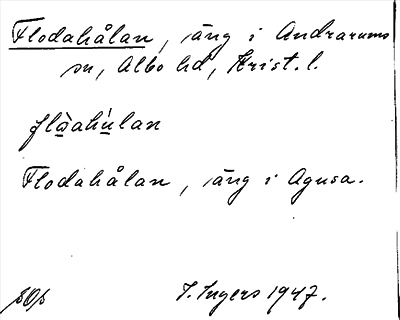 Flodahålan, äng i Andrarums
sn, Albo hd, Krist. l.
flàahùlan
Flodahålan, äng i Agusa.
I. Ingers 1947.